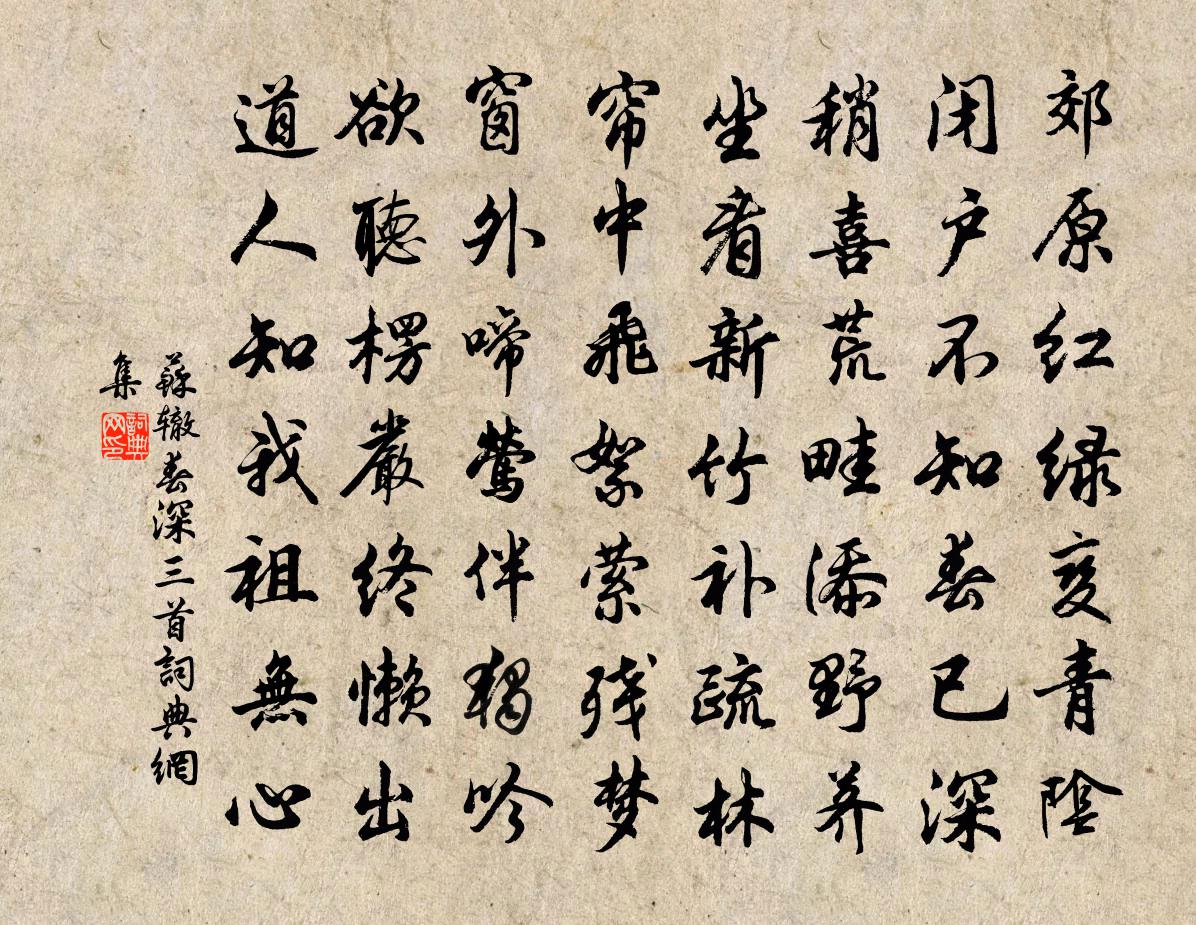 郊原红绿变青阴
闭户不知春已深
稍喜荒畦添野荠
坐看新竹补疏林
帘中飛絮萦残梦
窗外啼莺伴獨吟
欲聽楞嚴终懒出
道人知我祖無心
蘇辙春深三首詞典網
集
詞典网印